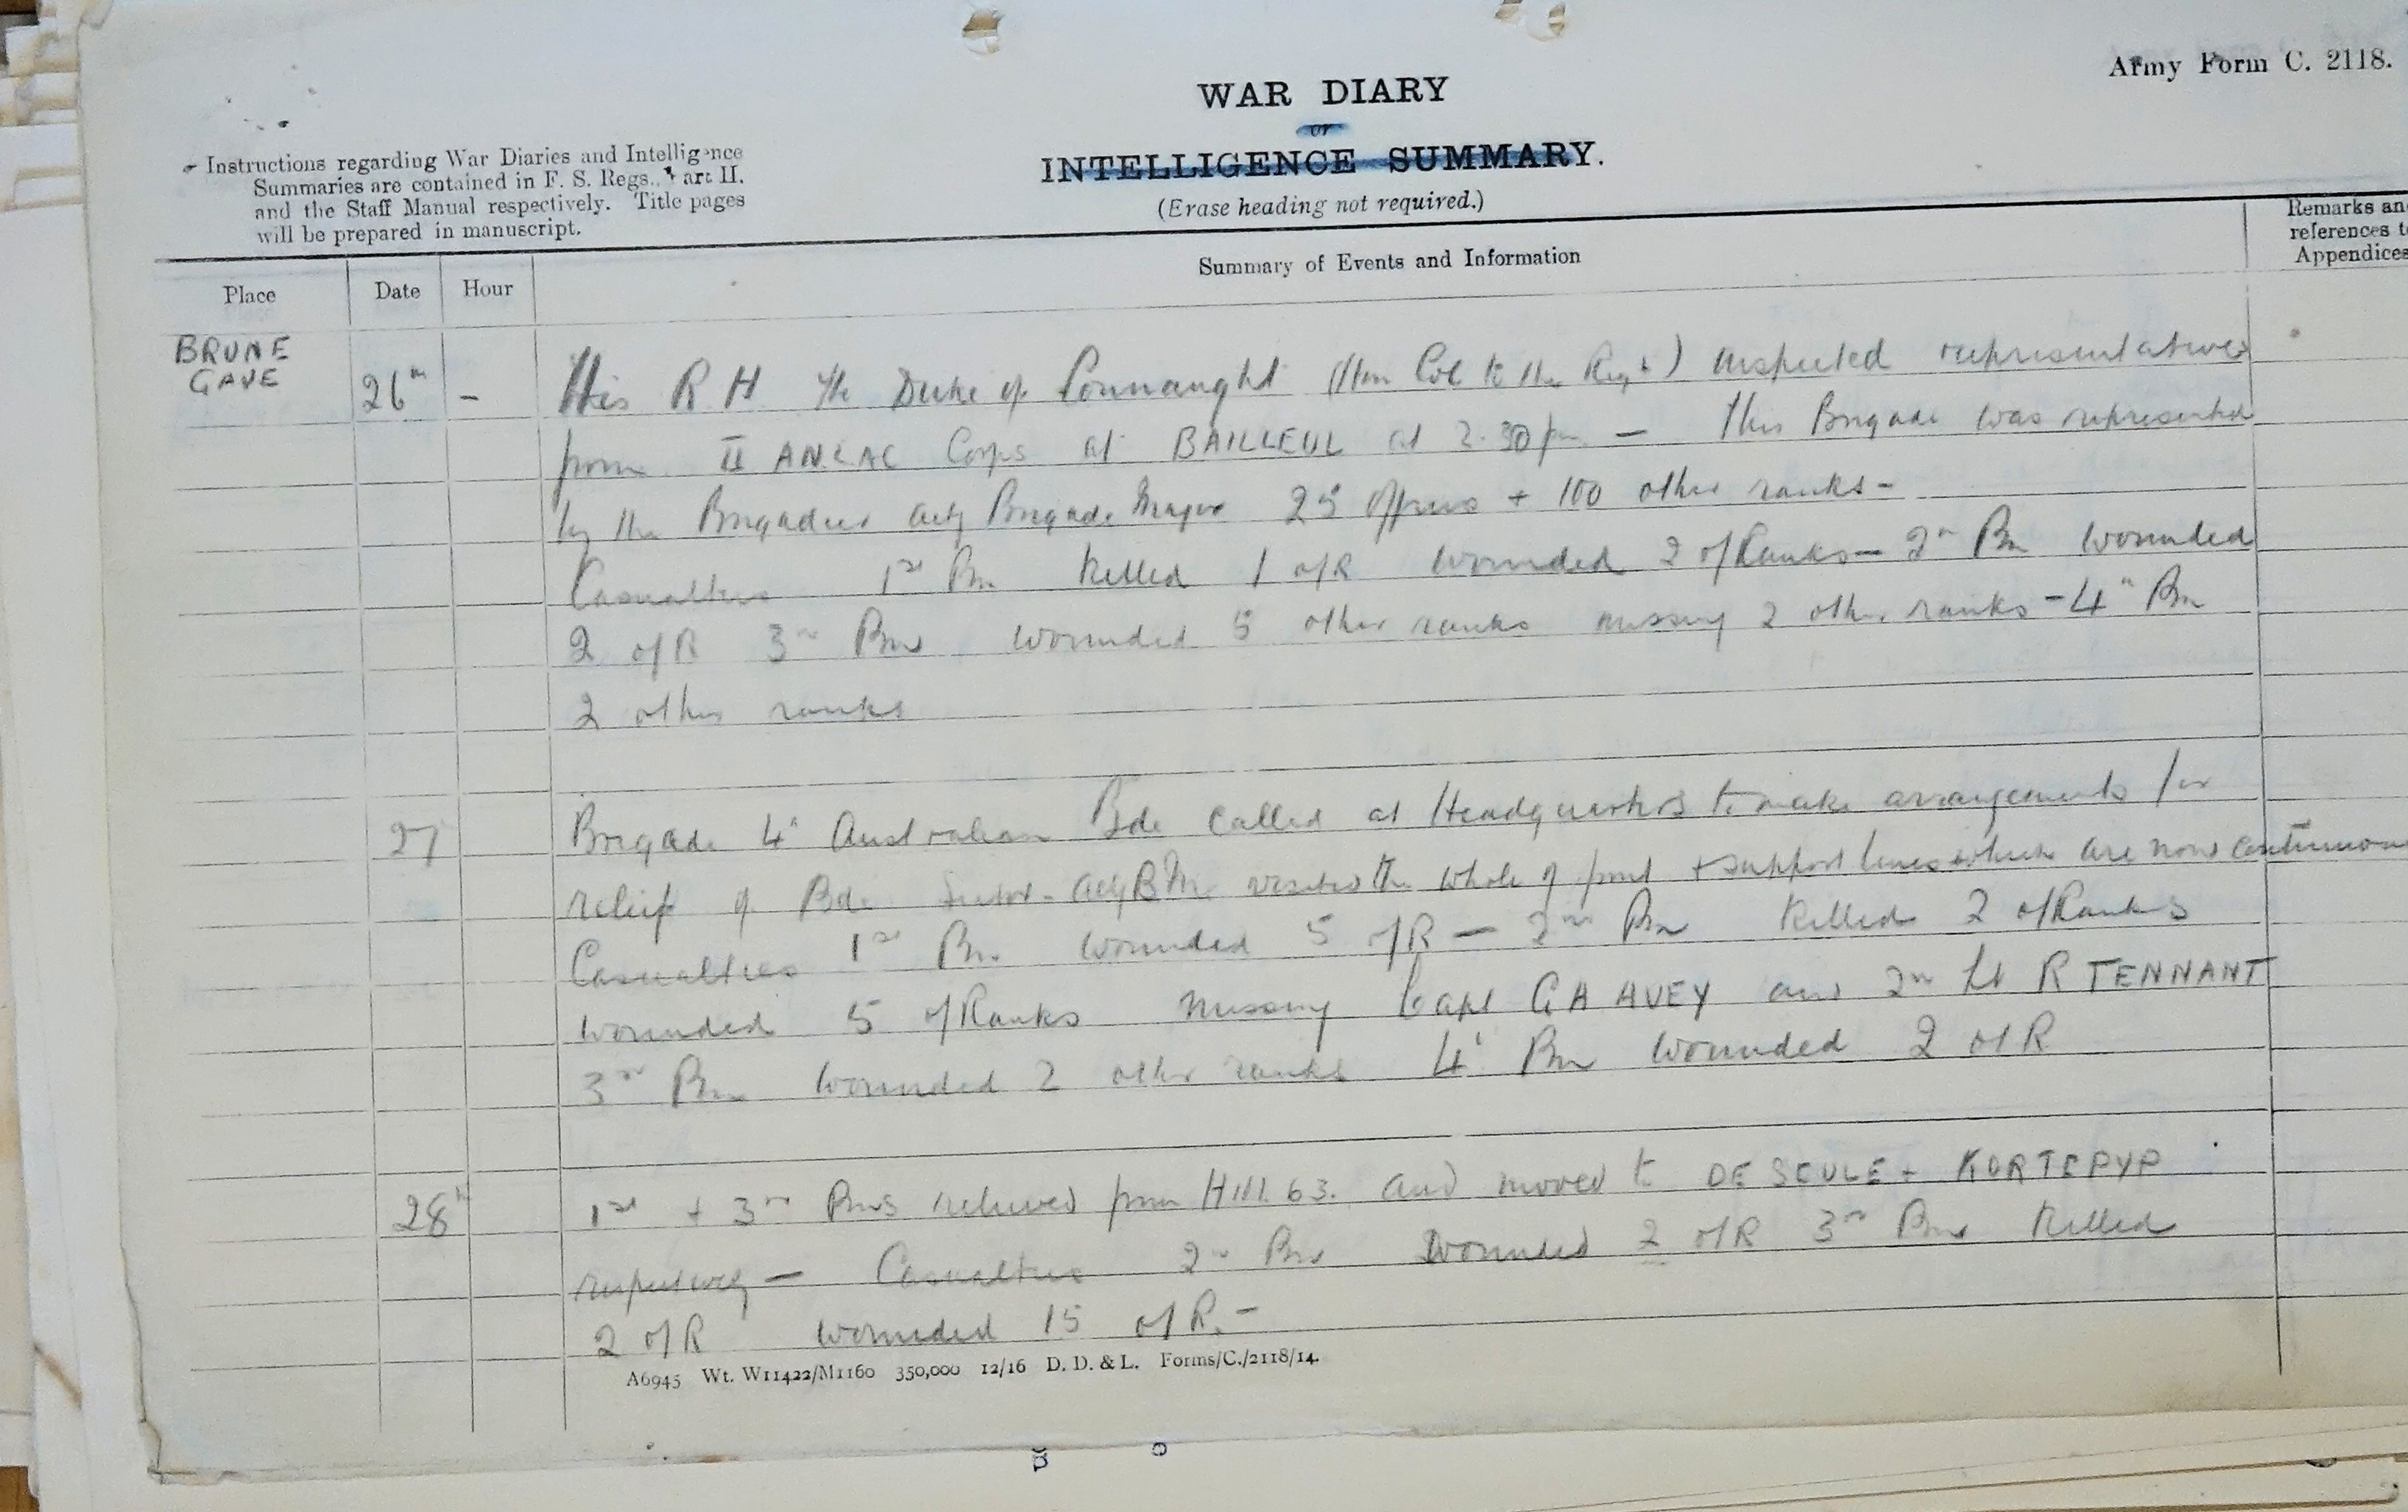 Army Form C. 2118.
WAR DIARY
or
INTELLIGENCE SUMMARY.
(Erase heading not required.)
Instructions regarding War Diaries and Intelligence
Summaries are contained in F. S. Regs., Part II.
and the Staff Manual respectively. Title pages
will be prepared in manuscript.
Place Date Hour Summary of Events and Information
Remarks and
references to
Appendices
BRUNE
GAYE
26th - His R H the Duke of Connaught (Hon Col to the Regt) inspected representatives
from II ANZAC Corps at BAILLEUL at 2.30 pm — This Brigade was represented
by the Brigadier actg Brigade Major 25 Officers + 100 other ranks -
Casualties 1st Bn killed 1 o/R wounded 2 o/Ranks — 2nd Bn wounded
2 o/R 3rd Bn wounded 5 other ranks missing 2 other ranks - 4th Bn
2 other ranks
27 Brigade 4th Australian Bde called at Headquarters to make arrangements for
relief of Bde Sector - actg BM visited the whole of front + support lines which are now continuous
Casualties 1st Bn wounded 5 o/R — 2nd Bn killed 2 o/Ranks
wounded 5 o/Ranks Missing Capt G A AVEY and 2nd Lt R TENNANT
3rd Bn wounded 2 other ranks 4th Bn wounded 2 o/R
28th 1st + 3rd Bns relieved from Hill 63. and moved to DE SEULE + KORTEPYP
respectively — Casualties 2nd Bn Wounded 2 o/R 3rd Bn killed
2 o/R wounded 15 o/R. -
A6945 Wt. W11422/M1160 350,000 12/16 D. D. & L. Forms/C./2118/14.